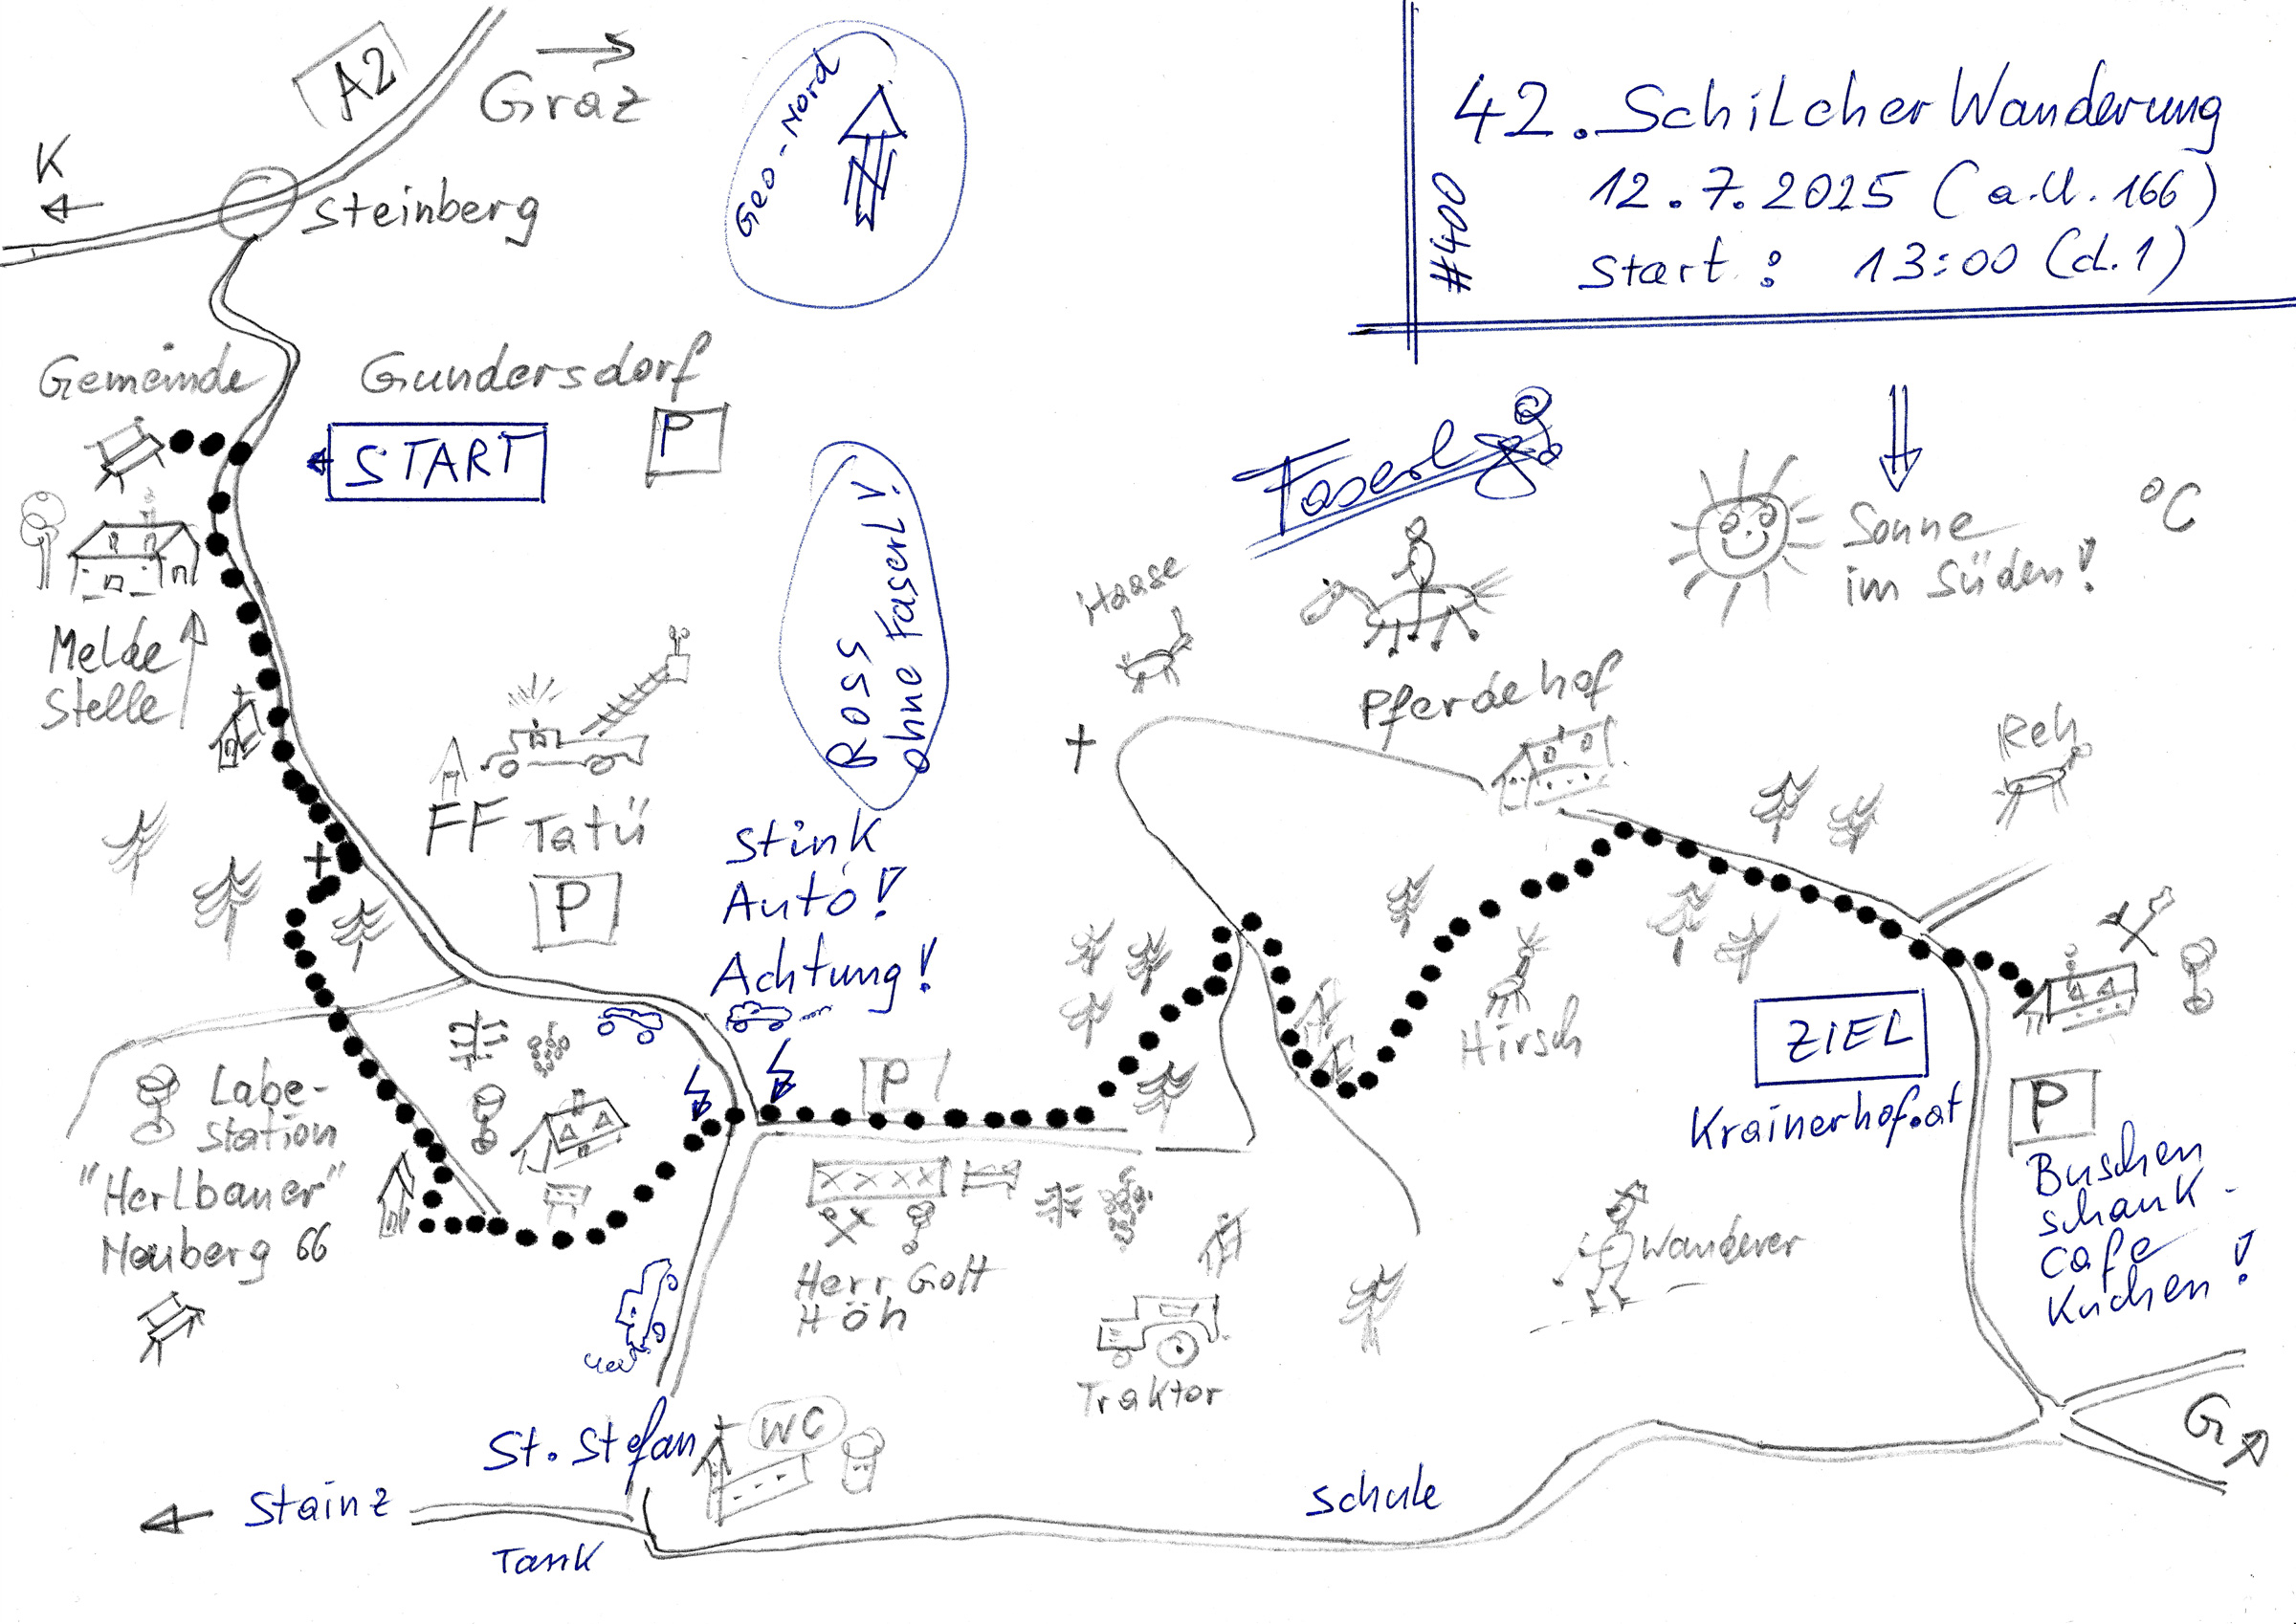 A2
Graz
K
Steinberg
Geo-Nord
42. Schilcher Wanderung
12.7.2025 (a.U. 166)
Start : 13:00 (d.1)
#400
Gemeinde Gundersdorf
START
P
Faserl
Sonne
im Süden!
°C
Haase
Melde
Stelle
Ross
ohne Faserl!
Pferdehof
Reh
FF Tatü
P
Stink
Auto!
Achtung!
Hirsch
ZIEL
Krainerhof.at
P
P
Labe-
station
"Herlbauer"
Neuberg 66
Buschen
schank -
cafe
Kuchen!
XXXX
Herr Gott
Höh
Wanderer
Traktor
St. Stefan
WC
G
Stainz
Schule
Tank